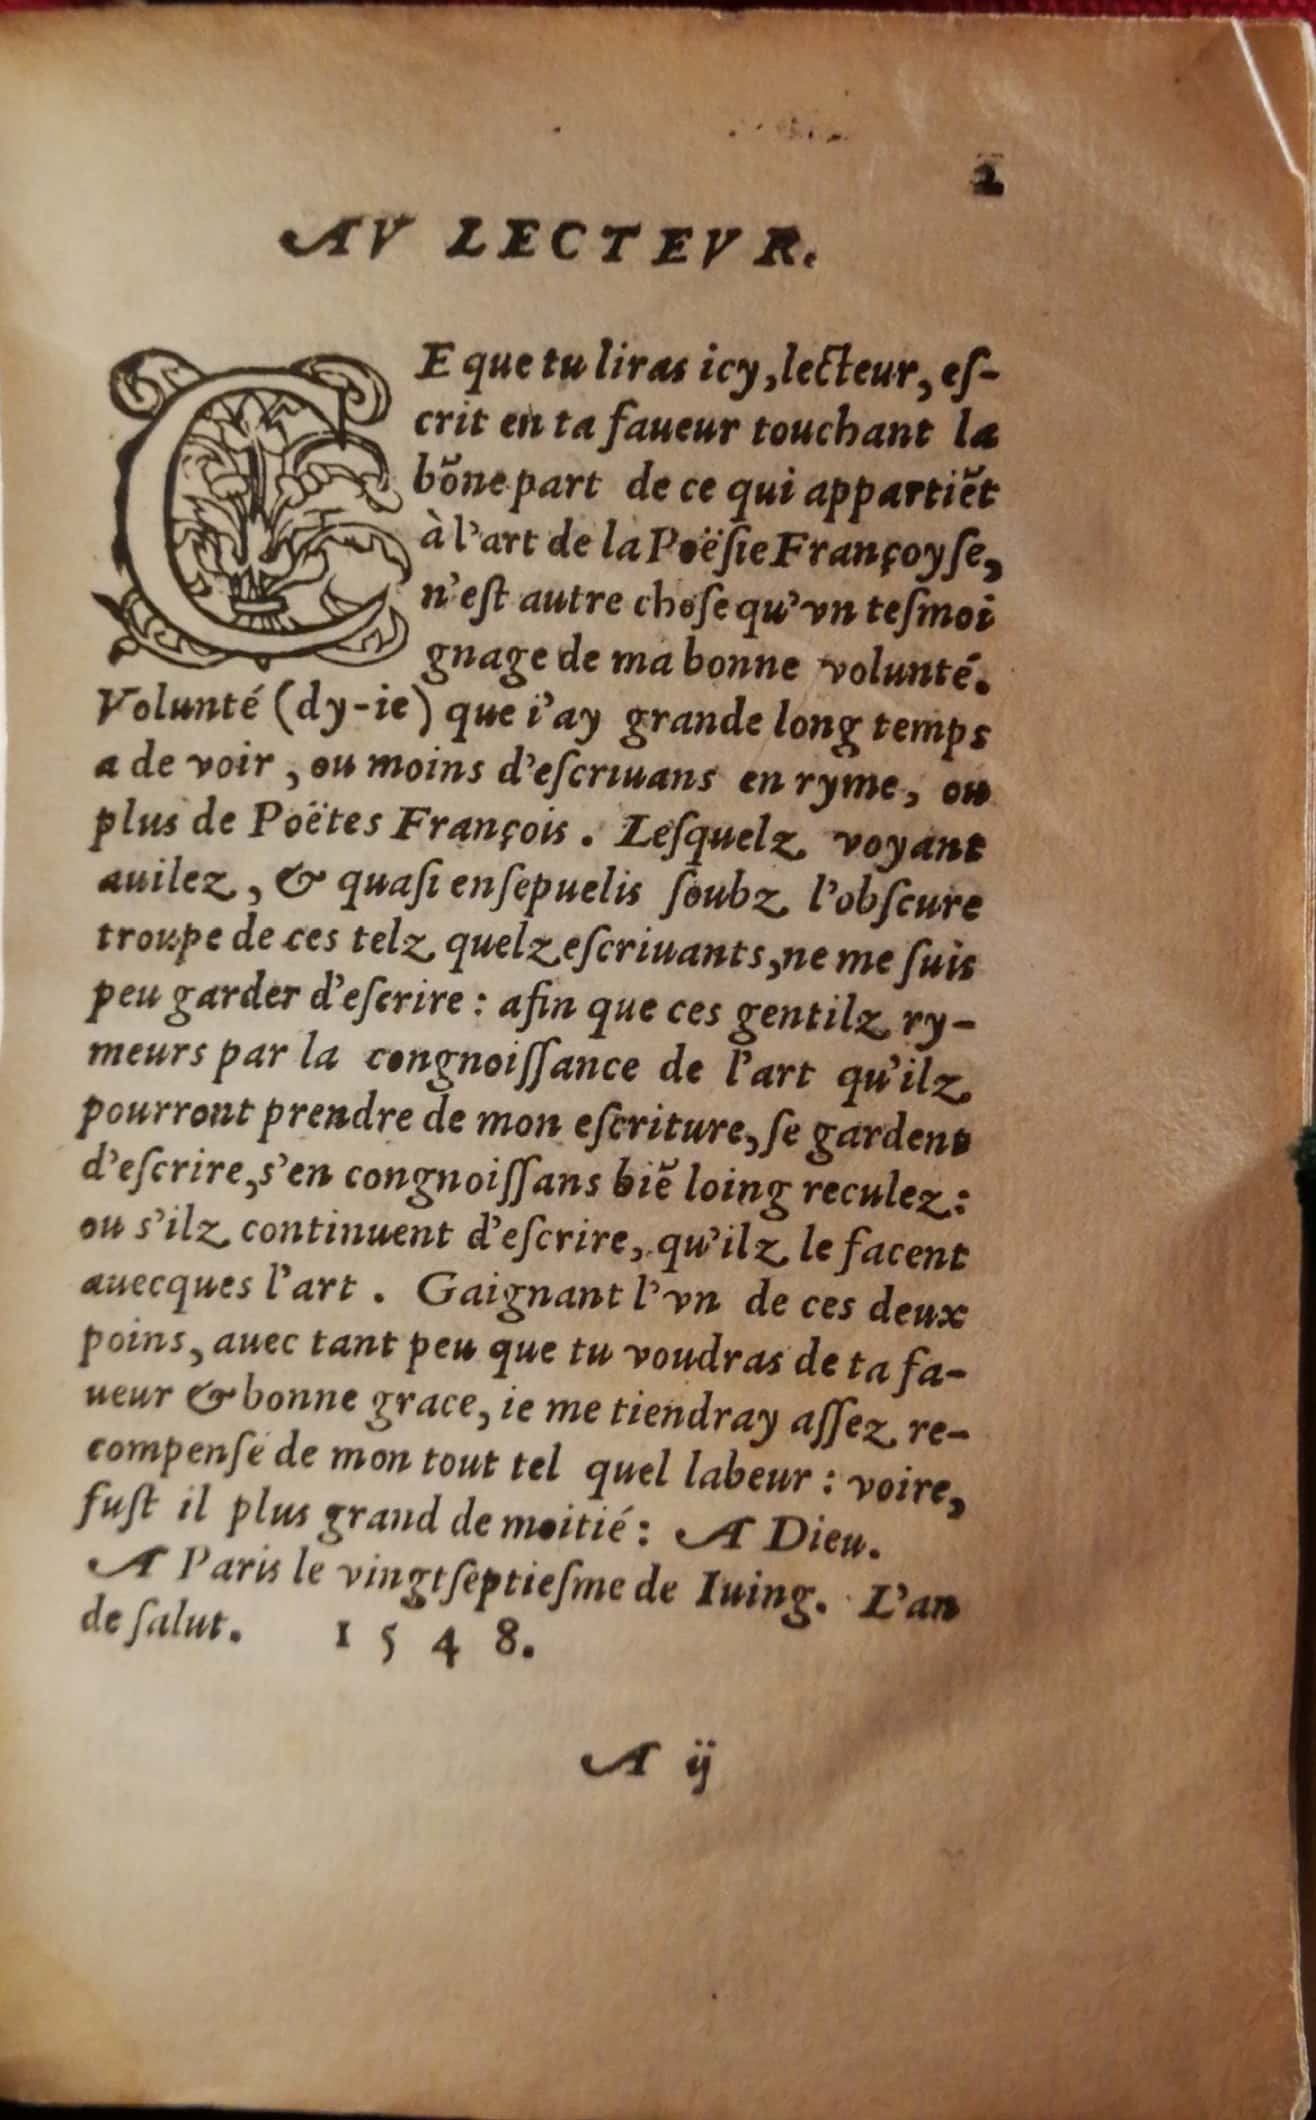 2
AV LECTEVR.
CE que tu liras icy, lecteur, eſ-
crit en ta faueur touchant la
bõne part de ce qui appartiẽt
à l'art de la Poëſie Françoyſe,
n'eſt autre choſe qu'vn teſmoi
gnage de ma bonne volunté.
Volunté (dy-ie) que i'ay grande long temps
a de voir, ou moins d'eſcriuans en ryme, ou
plus de Poëtes François. Leſquelz voyant
auilez, & quaſi enſepuelis ſoubz l'obſcure
troupe de ces telz quelz eſcriuants, ne me ſuis
peu garder d'eſcrire: afin que ces gentilz ry-
meurs par la congnoiſſance de l'art qu'ilz
pourront prendre de mon eſcriture, ſe gardent
d'eſcrire, s'en congnoiſſans biẽ loing reculez:
ou s'ilz continuent d'eſcrire, qu'ilz le facent
auecques l'art. Gaignant l'vn de ces deux
poins, auec tant peu que tu voudras de ta fa-
ueur & bonne grace, ie me tiendray aſſez re-
compenſé de mon tout tel quel labeur: voire,
fuſt il plus grand de moitié: A Dieu.
A Paris le vingtſeptieſme de Iuing. L'an
de ſalut. 1 5 4 8.
A ij